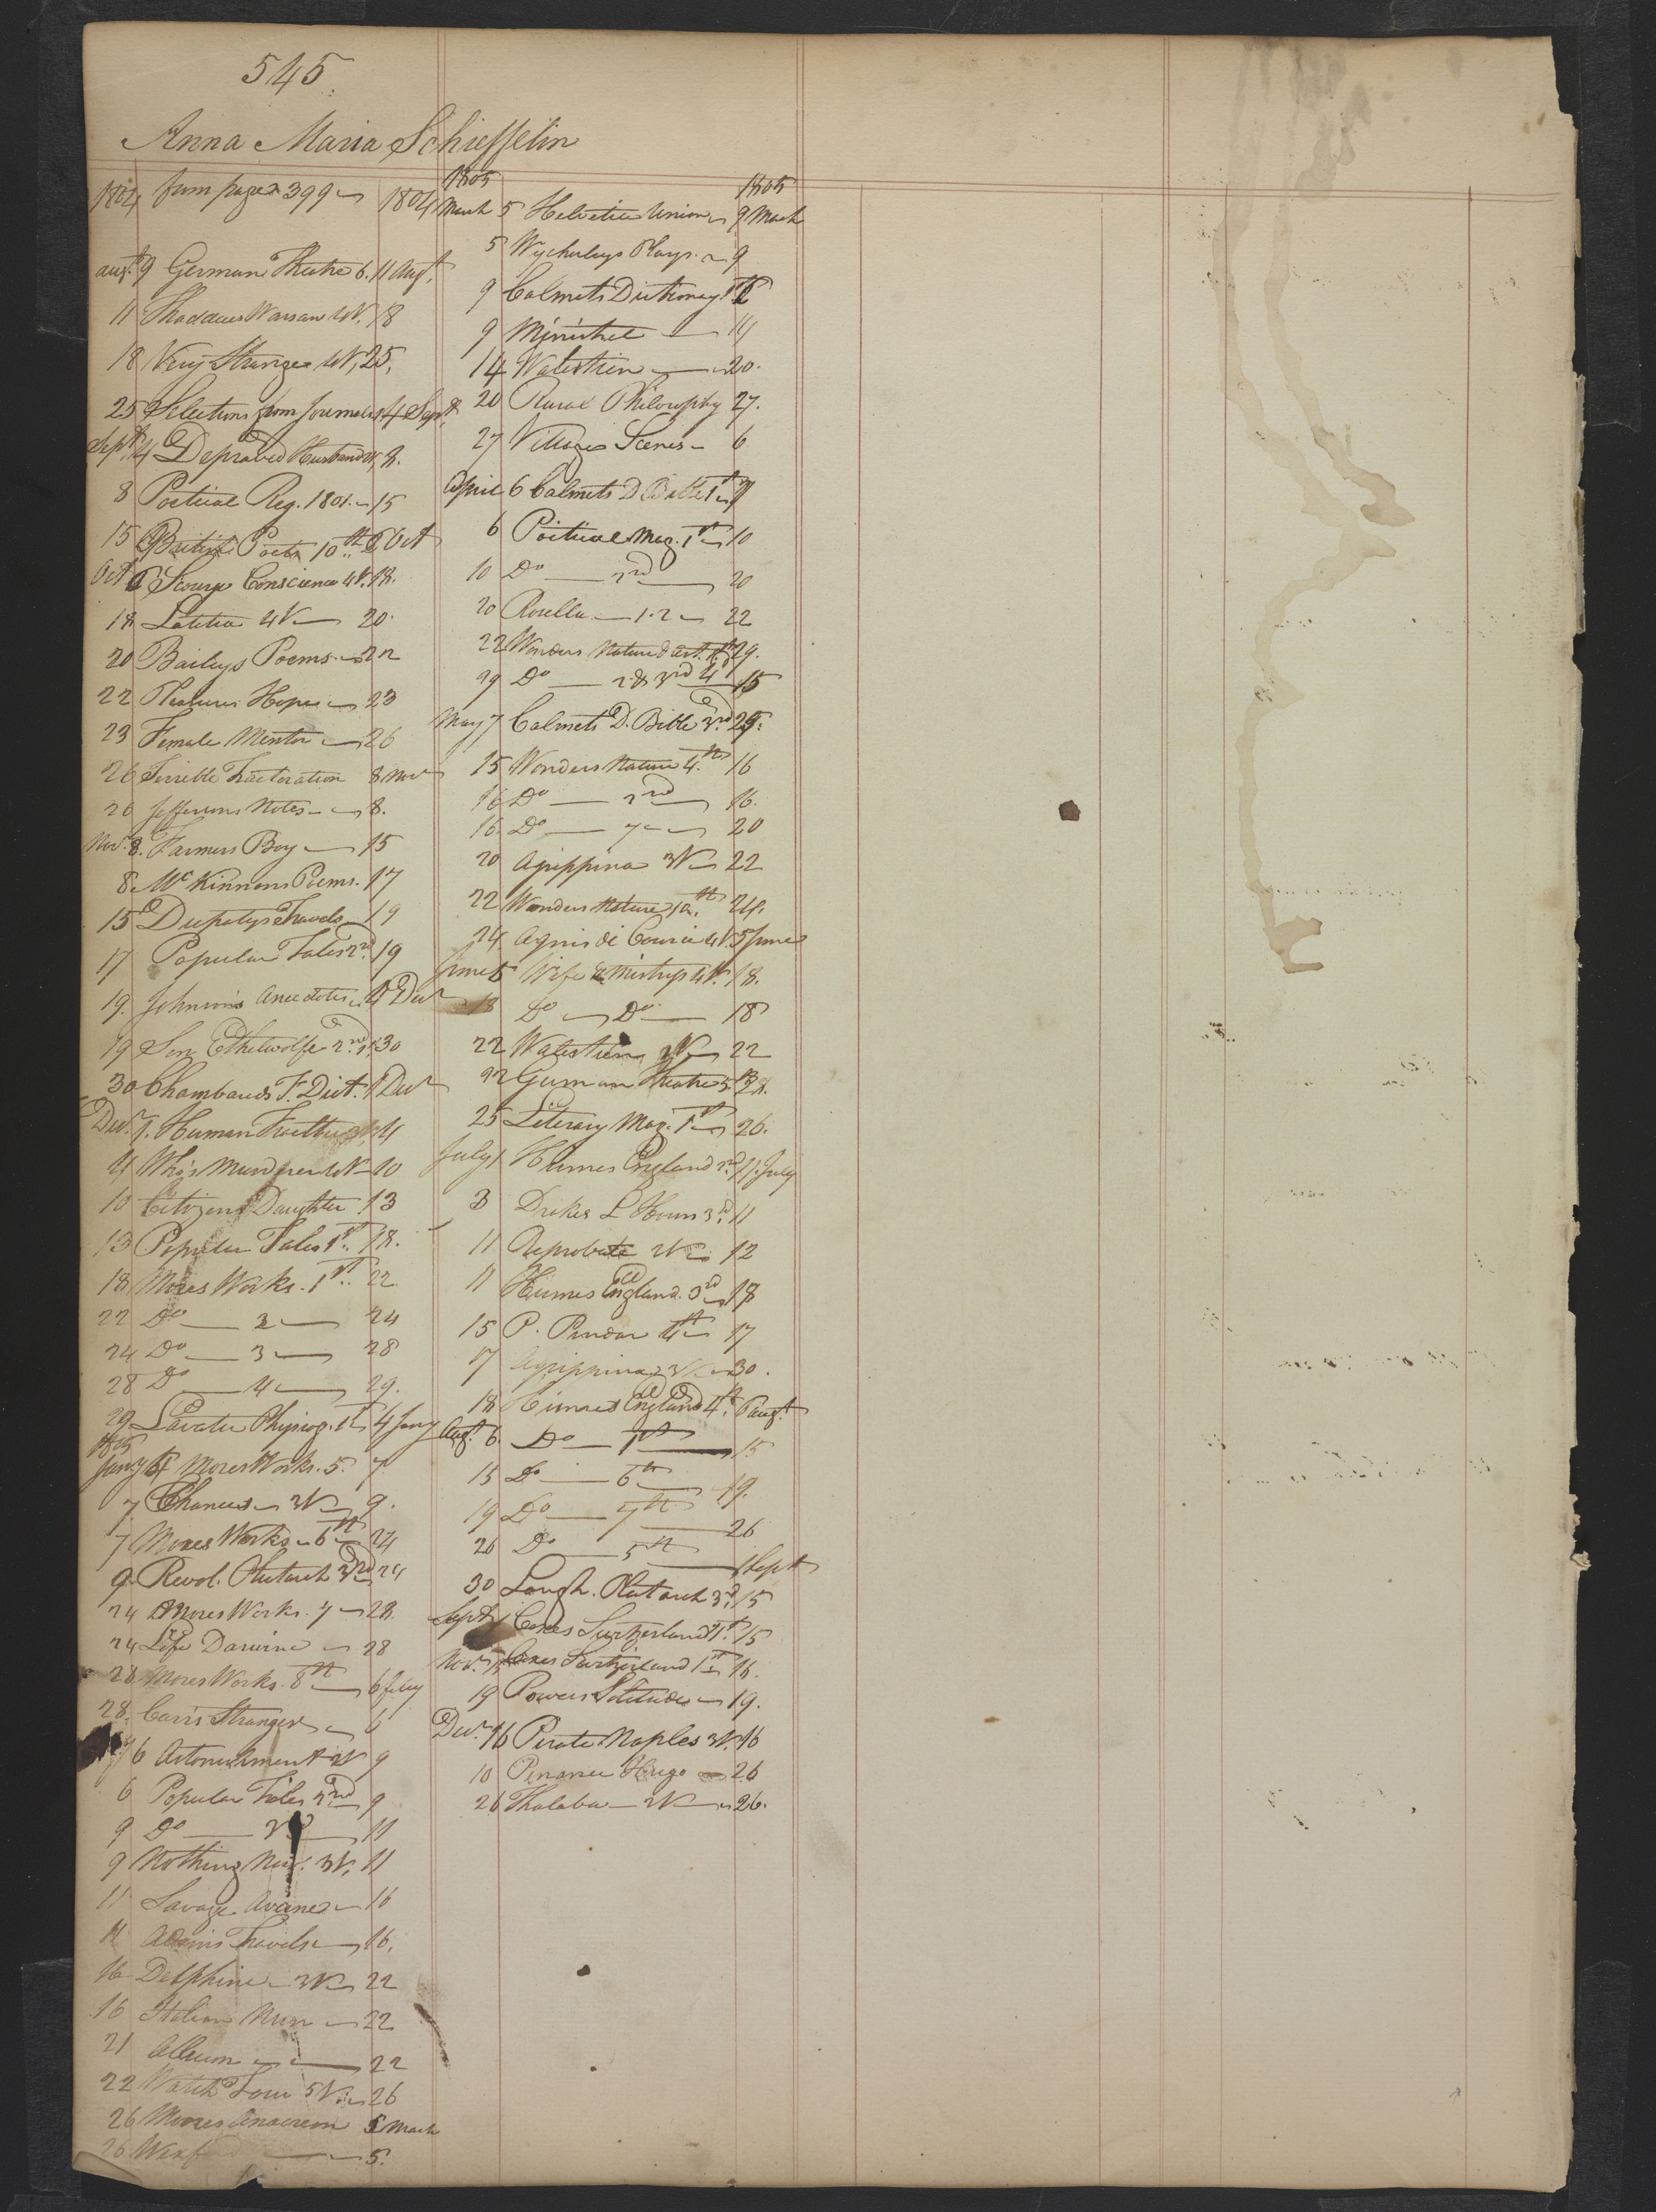 545
Anna Maria Schieffelin
1804 from page 399 1804
augt. 9 German Theatre 6. 11 Augt.
11 Thaddeus Warsaw 4V. 18
18 Very Strange 4V. 25.
25 Selections from Journals 4 Sept.
Sept. 4 Depraved Husband 8.
8 Poetical Reg. 1801. 15
15 British Poets 10th 6 Oct
Oct 6 Scourge Conscience 4V. 18.
18 Letitia 4V 20.
20 Baileys Poems 22
22 Pleasures Hope 23
23 Female Mentor 26
26 Terrible Tractoration 8 Nov
26 Jeffersons Notes 8.
Nov. 8. Farmers Boy 15
8. McKinnons Poems. 17
15 Travels 19
17 Popular Tales 2nd. 19
19. Johnson's Anecdotes 4 Dec
19 Son Ethelwolfe 30
30 Chambauds F. Dict. 1 Decr
Decr. 1. Human 4
4 Who's Murderer 4V 10
10 Citizens Daughter 13
13 Popular Tales 1st. 18.
18 Mores Works. 1st. 22
22 Do 2 24
24 Do 3 28
28 Do 4 29.
29 Lavater Physiog. 1st 4 Jany
1805
Jany 4 Mores Works. 5. 7
7 Chances 3V 9.
7 Mores Works 6th 24
9. Revol. Plutarch 3rd 24
24 Mores Works. 7 28.
24 Life Darwin 28
28 Mores Works. 8th 6 feby
28. Stranger 6
6 Astonishment 2V 9
6 Popular Tales 2nd 9
9 Do 11
9 Nothing New. 3V. 11
11 Savage 16
11 Travels 16.
16 Delphine 3V 22
16 Italian Nun 22
21 Album 22
22 Watch Tower 5V. 26
26 Moores Anacreon 5 March
26 5.
1805 1805
March 5 Helvetic Union 9 March
5 Wycherleys Plays. 9
9 Calmets Dictionary
9 Minstrel 14
14 Walestein 20.
20 Rural Philosophy 27.
27 Village Scenes 6
April 6 Calmets D Bible 1st
6 Poetical Mag. 1st 10
10 Do 2nd 20
20 Rosella 1.2 22
22 Wonders Nature & Art. 29.
29 Do 2 & 3rd 4 15
May 7 Calmets D. Bible 3rd 29.
15 Wonders Nature 4th 16
16 Do 2nd 16.
16 Do 7 20
20 Agrippina 3V 22
22 Wonders Nature 24.
24. Agnis di Courci 4V. 5 June
June 5 Wife & Mistress 4V. 18.
18 Do Do 18
22 Walestein 2V 22
22 German Theatre 5.
25 Literary Mag. 1st 26.
July 1 Humes England 2nd. 11. July
3 Drakes L Hours 3d. 11
11 Reprobate 2V 12
11 Humes England. 3rd 18
15 P. Pindar 4th 17
17 Agrippina 3V 30.
18 Humes England 4th. 6 augt.
Augt. 6. Do 15.
15 Do 6th 19.
19 Do 7th 26
26 Do 5th 1 Sept
30 Langh. Plutarch 3d. 15
Sept 1 Coxes Switzerland 1st. 15
Nov. 15 Coxes Switzerland 1st 16.
19 Powers Solitude 19.
Decr. 16 Pirate Naples 3V. 16
10 Hugo 26
26 Thalaba 2V 26.